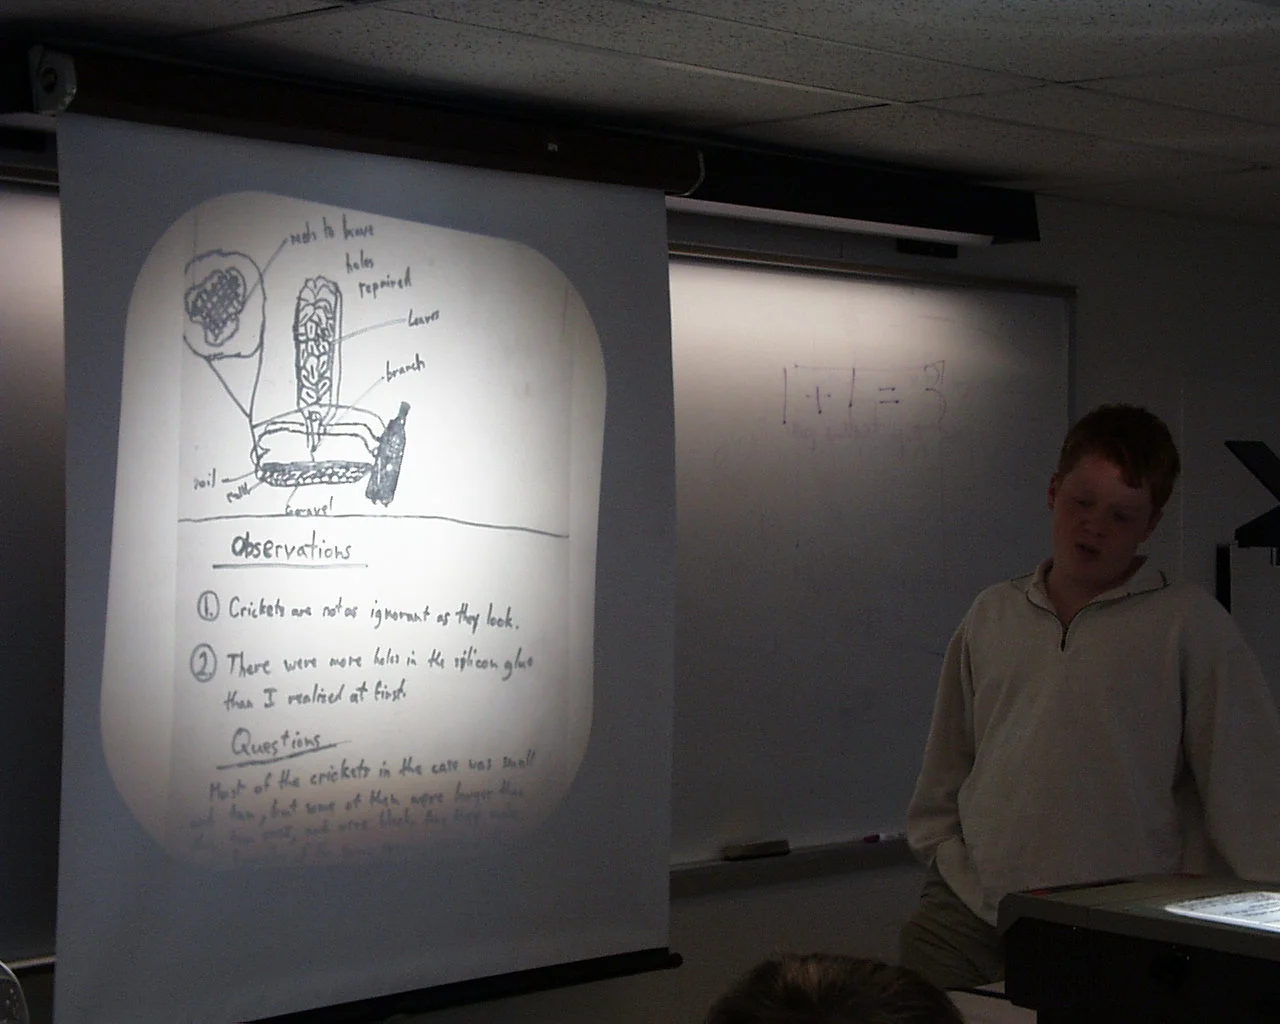 holes
repaired
leaves
branch
soil
Gravel
Observations
1. Crickets are not as ignorant as they look.
2 There were more holes in the splicon glue
than I realised at first.
Questions
Most of the crickets in the case was small
and tan, but some of them were larger than
1+1=3